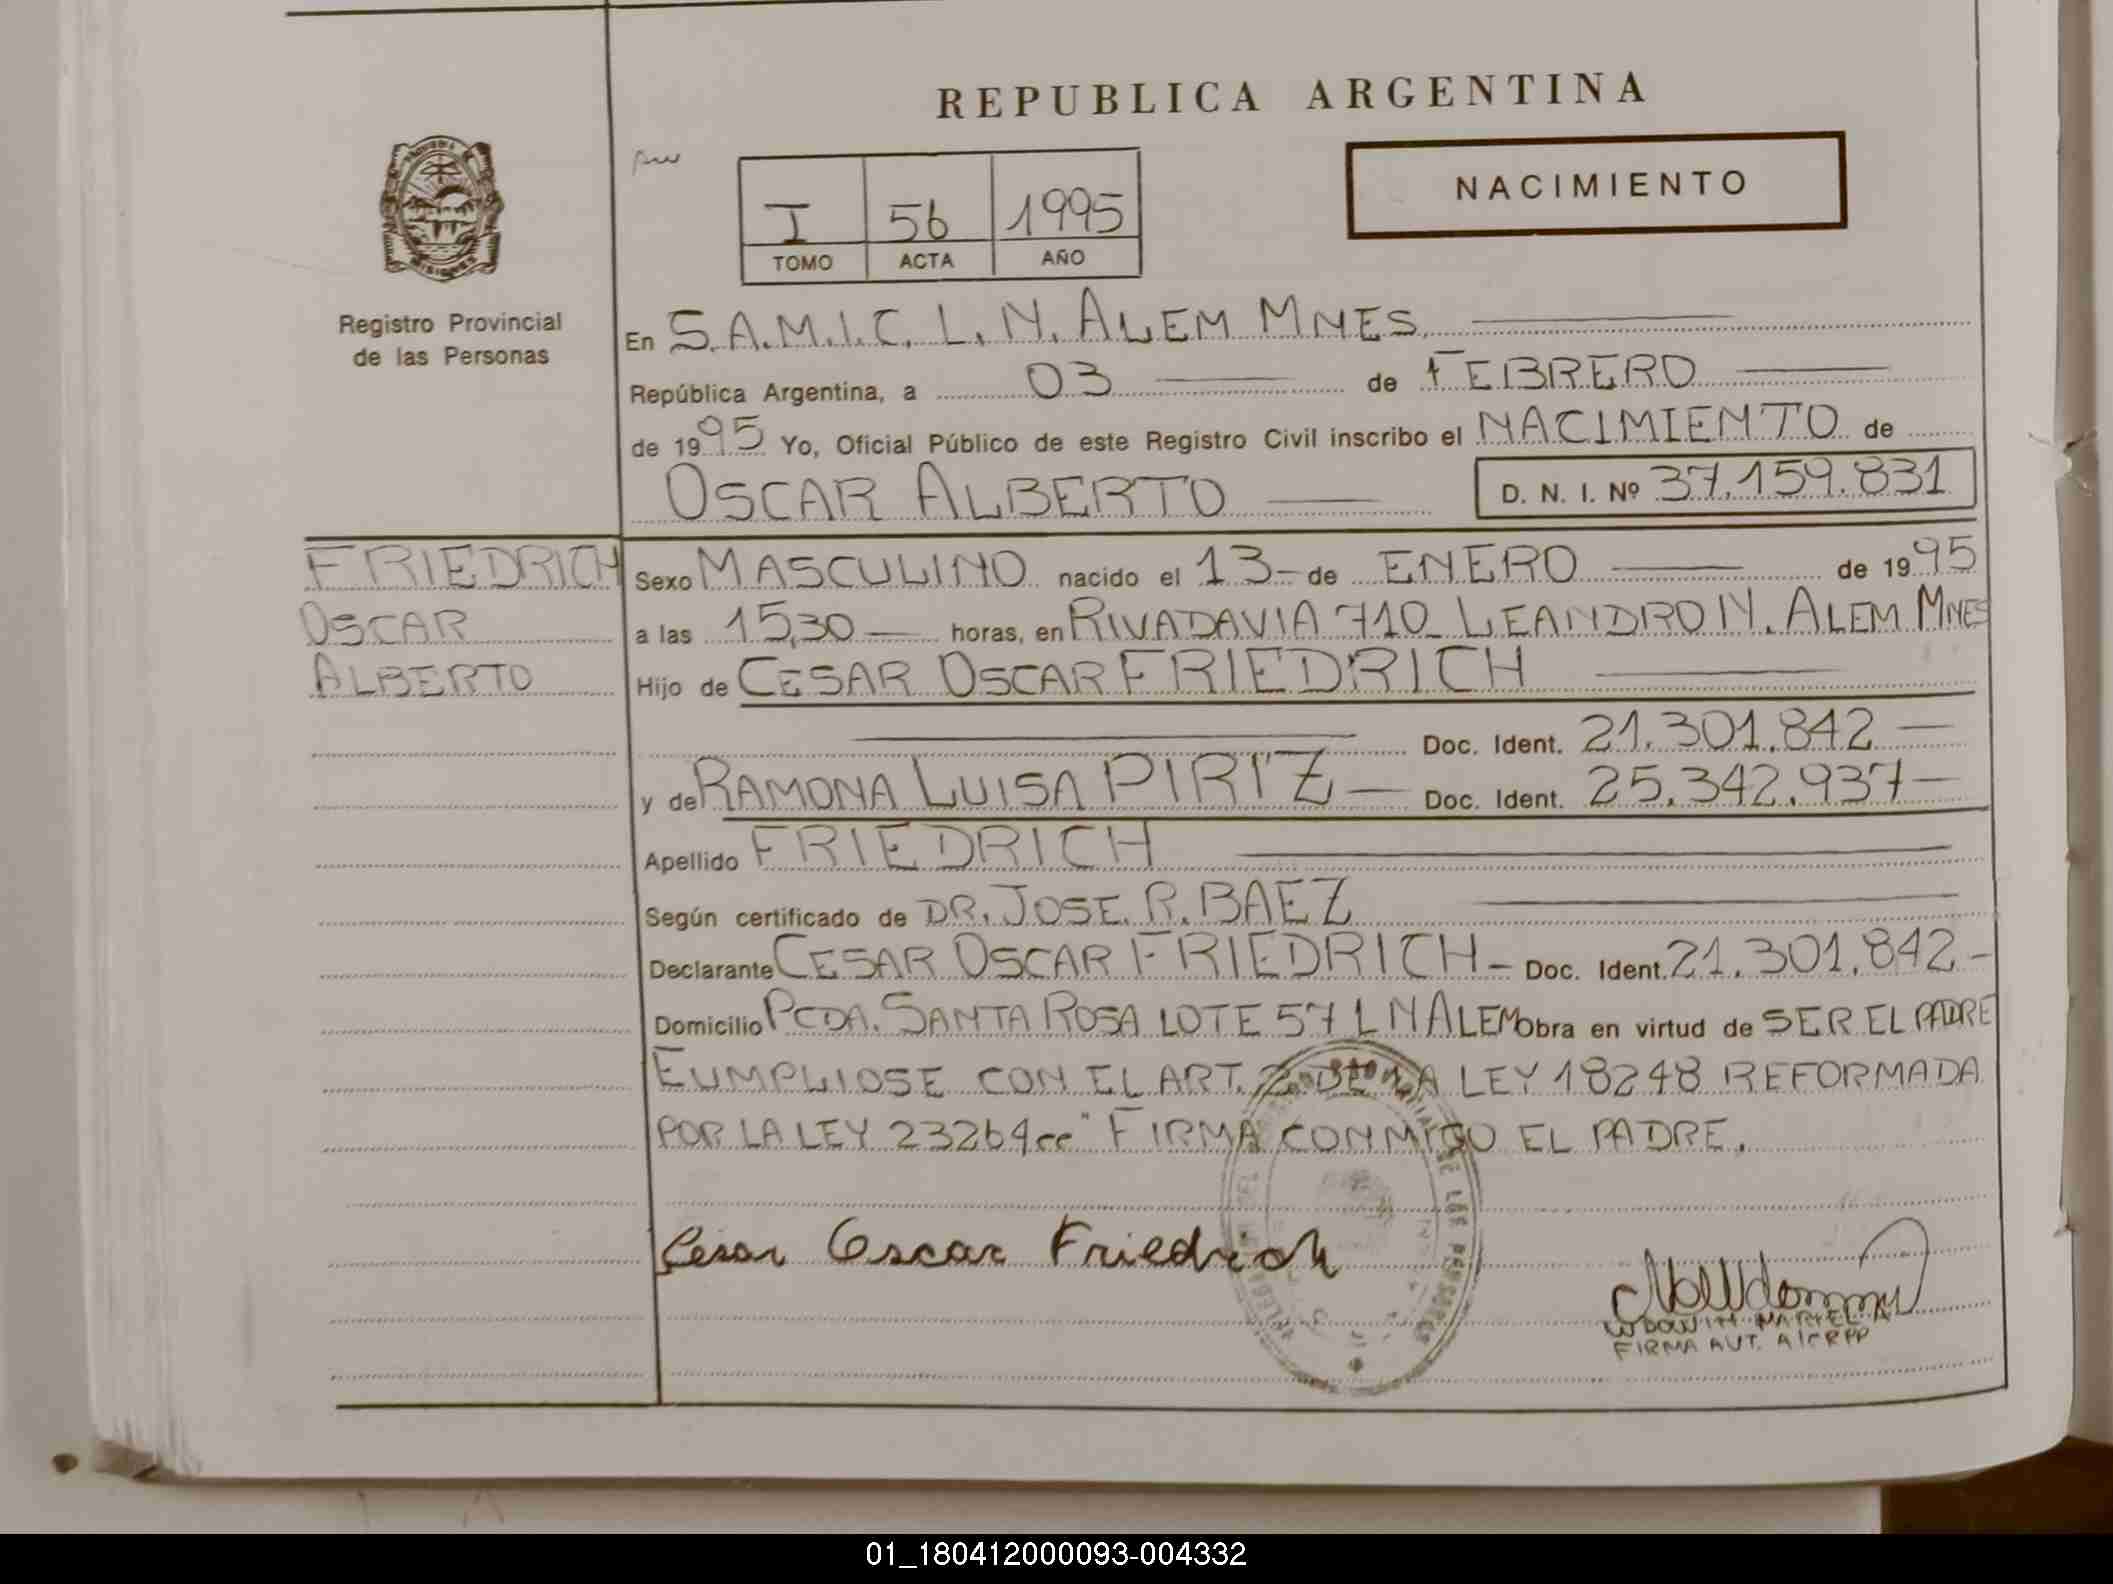 REPUBLICA ARGENTINA
NACIMIENTO
I 56 1995
TOMO ACTA AÑO
Registro Provincial
de las Personas
En S.A.M.I.C. L. N. ALEM MNES.
República Argentina, a 03 de FEBRERO
de 1995 Yo, Oficial Público de este Registro Civil inscribo el NACIMIENTO de
OSCAR ALBERTO D. N. I. Nº 37.159.831
FRIEDRICH
OSCAR
ALBERTO
Sexo MASCULINO nacido el 13 - de ENERO de 1995
a las 15,30 horas, en RIVADAVIA 710 - LEANDRO N. ALEM MNES
Hijo de CESAR OSCAR FRIEDRICH
Doc. Ident. 21.301.842
y de RAMONA LUISA PIRIZ - Doc. Ident. 25.342.937
Apellido FRIEDRICH
Según certificado de DR. JOSE. R. BAEZ
Declarante CESAR OSCAR FRIEDRICH - Doc. Ident. 21.301.842 -
Domicilio PCDA. SANTA ROSA LOTE 57 L N ALEM Obra en virtud de SER EL PADRE
EUMPLIOSE CON EL ART. 2 DE LA LEY 18248 REFORMADA
POR LA LEY 23264 cc" FIRMA CONMIGO EL PADRE.
Cesar Oscar Friedrich
FIRMA AUT.
01_180412000093-004332